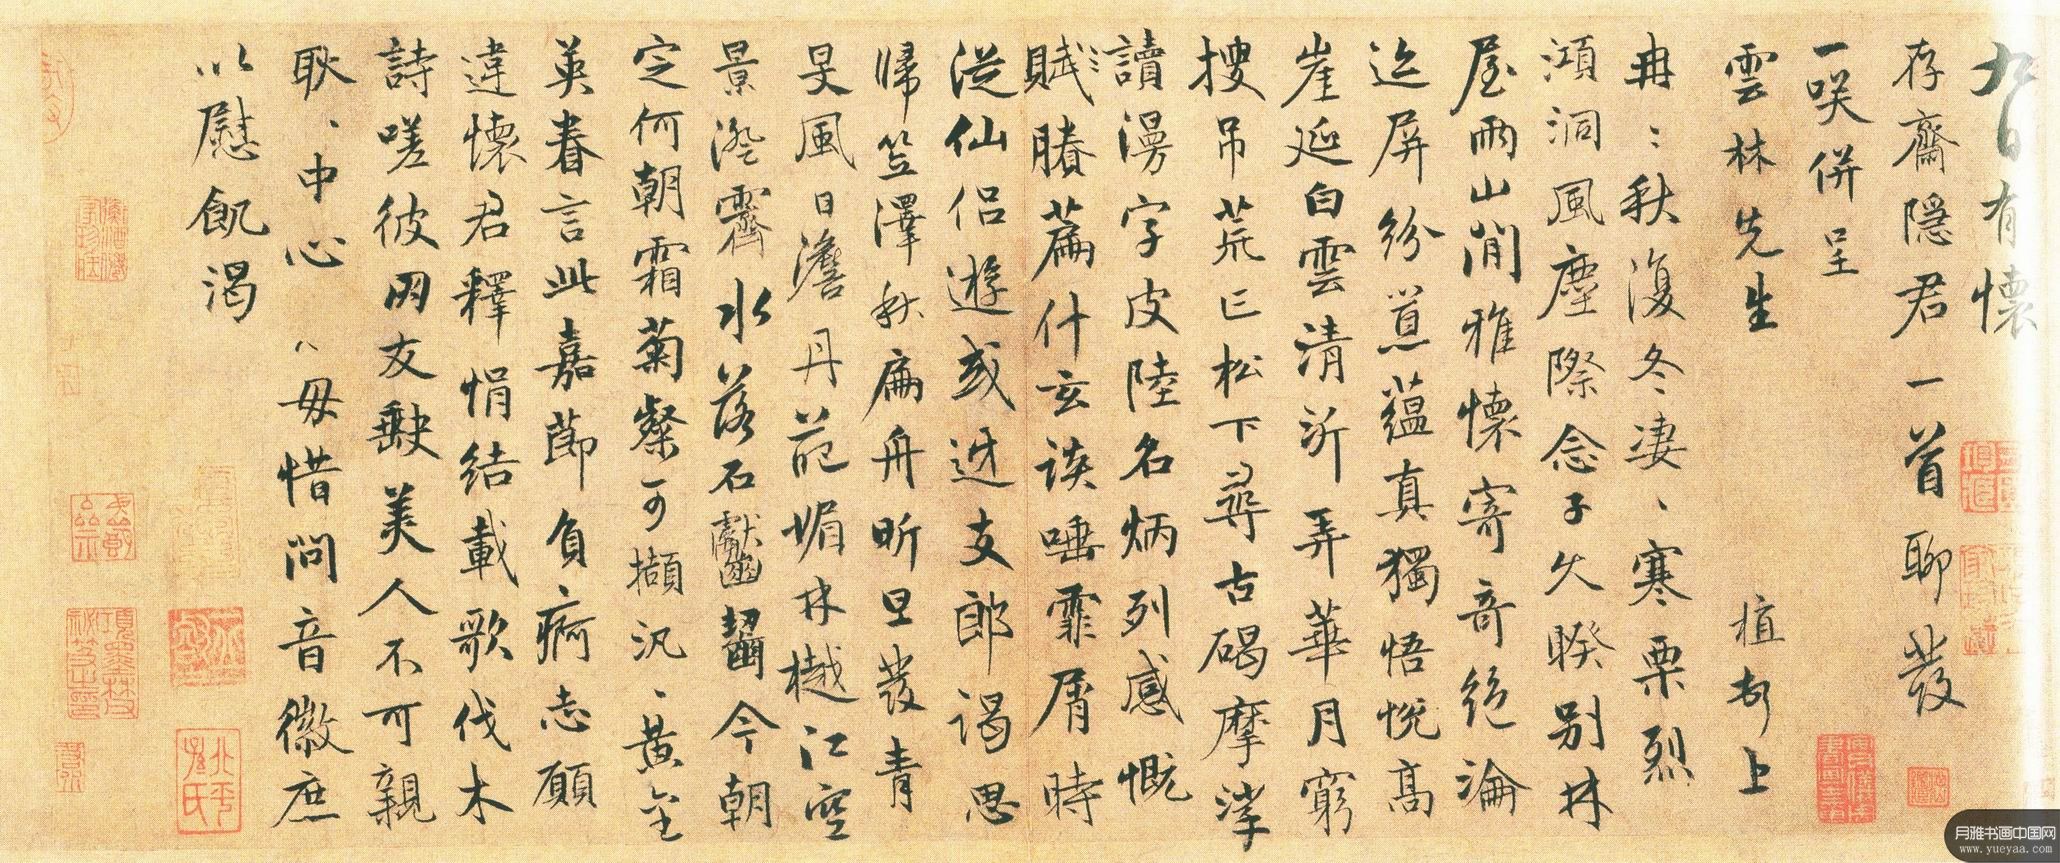 九日有懷
存齋隱君一首聊發
一咲併呈
雲林先生
植頓上
冉〻秋復冬淒〻寒栗烈
澒洞風塵際念子久暌別林
屋兩山間雅懷寄奇絕淪
迄屏紛蕴真獨悟悅高
崖延白雲清泝弄華月窮
搜吊荒亡松下尋古碣摩挲
讀漫字皮陸名炳列感慨
賦謄篇什玄談唾霏屑時
從仙侣遊或迓支郎謁思
歸笠澤秋扁舟昕旦發青
旻風日澹丹葩媚林樾江空
景澄霽水落石齧今朝
定何朝霜菊粲可擷汎〻黃金
英眷言此嘉節負痾志願
違懷君釋悁結載歌伐木
詩嗟彼罔友缺美人不可親
耿〻中心〻毋惜問音徽庶
以慰飢渴
北平孫氏
月雅书画中国网
www.yueyaa.com